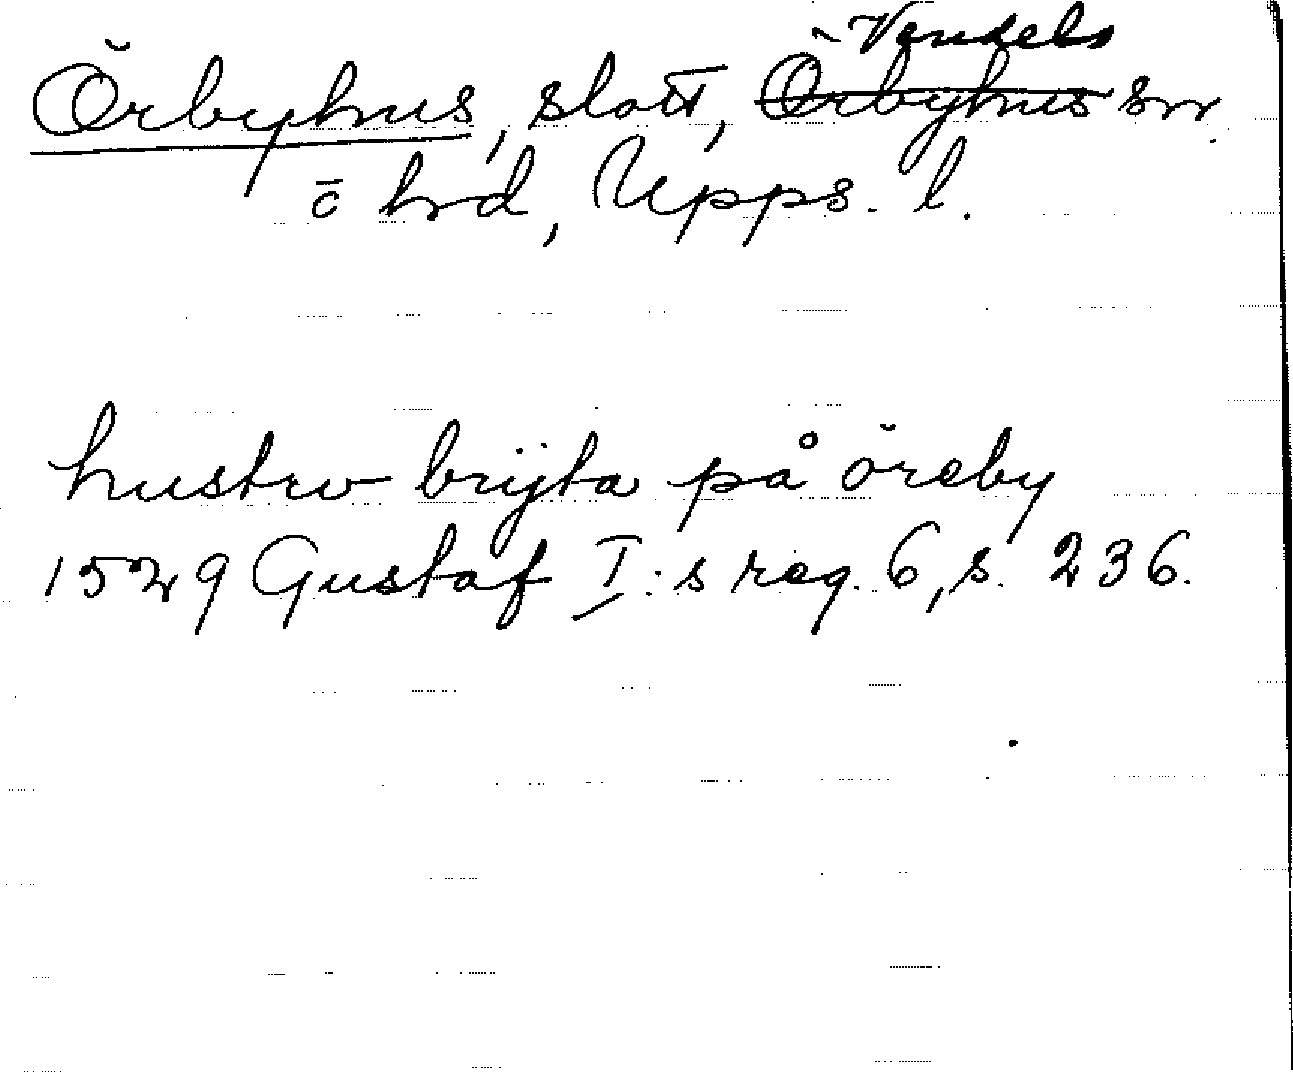 Vendels
Örbyhus, slott, Örbyhus sn.
o hd, Upps. l.
hustrv brÿta på öreby
1529 Gustaf I:s reg. 6, s. 236.